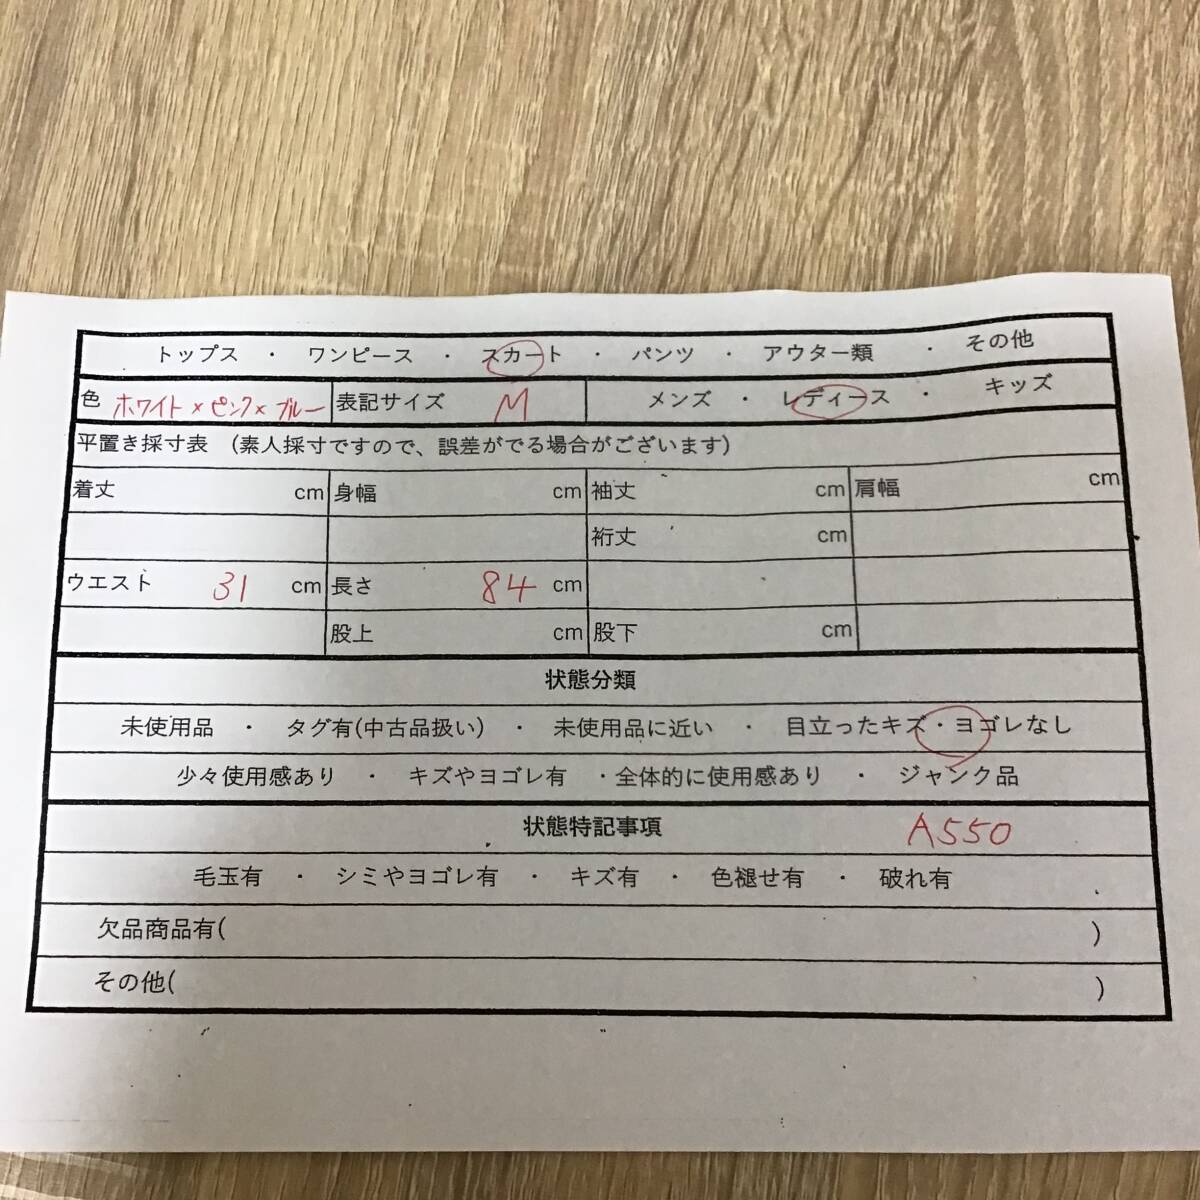 トップス ・ ワンピース ・ スカート ・ パンツ ・ アウター類 ・ その他
色 ホワイト×ピンク×ブルー 表記サイズ M メンズ ・ レディース ・ キッズ
平置き採寸表 (素人採寸ですので、誤差がでる場合がございます)
着丈 cm 身幅 cm 袖丈 cm 肩幅 cm
裄丈 cm
ウエスト 31 cm 長さ 84 cm
股上 cm 股下 cm
状態分類
未使用品 ・ タグ有(中古品扱い) ・ 未使用品に近い ・ 目立ったキズ・ヨゴレなし
少々使用感あり ・ キズやヨゴレ有 ・全体的に使用感あり ・ ジャンク品
状態特記事項 A550
毛玉有 ・ シミやヨゴレ有 ・ キズ有 ・ 色褪せ有 ・ 破れ有
欠品商品有( )
その他( )